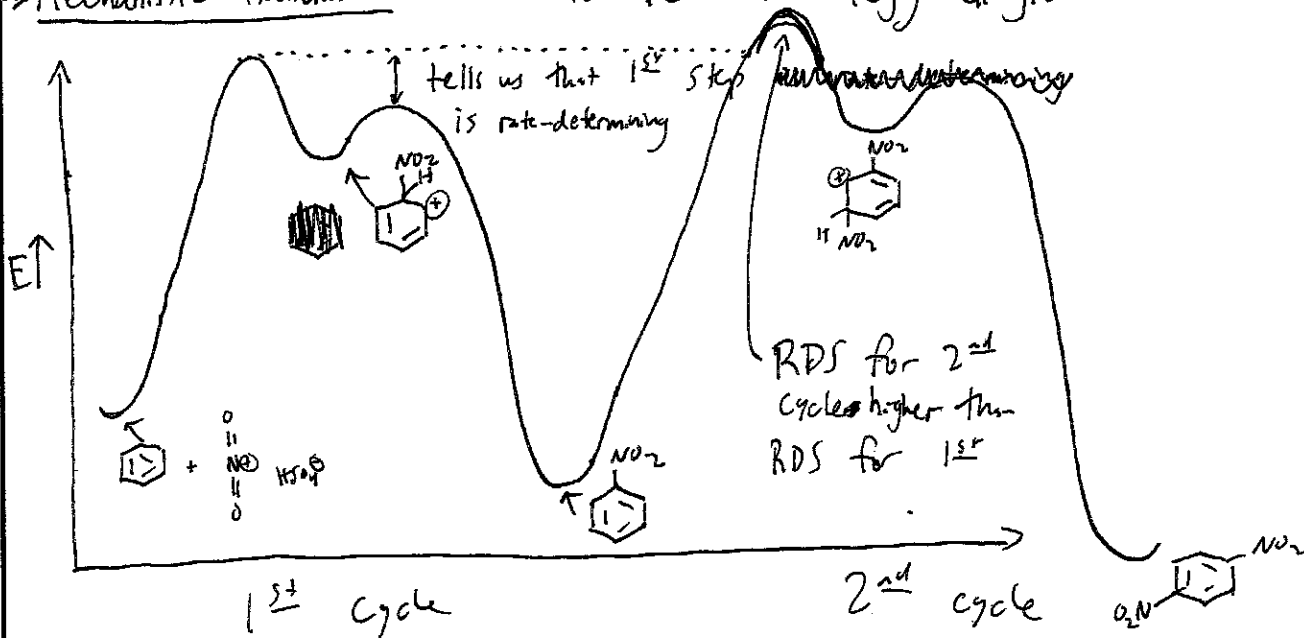 tells us that 1st step
is rate-determining
NO2
H
+
NO2
+
H
NO2
E↑
RDS for 2nd
cycle higher than
RDS for 1st
O
+
N+
HSO4⊖
O
NO2
NO2
O2N
1st cycle
2nd cycle